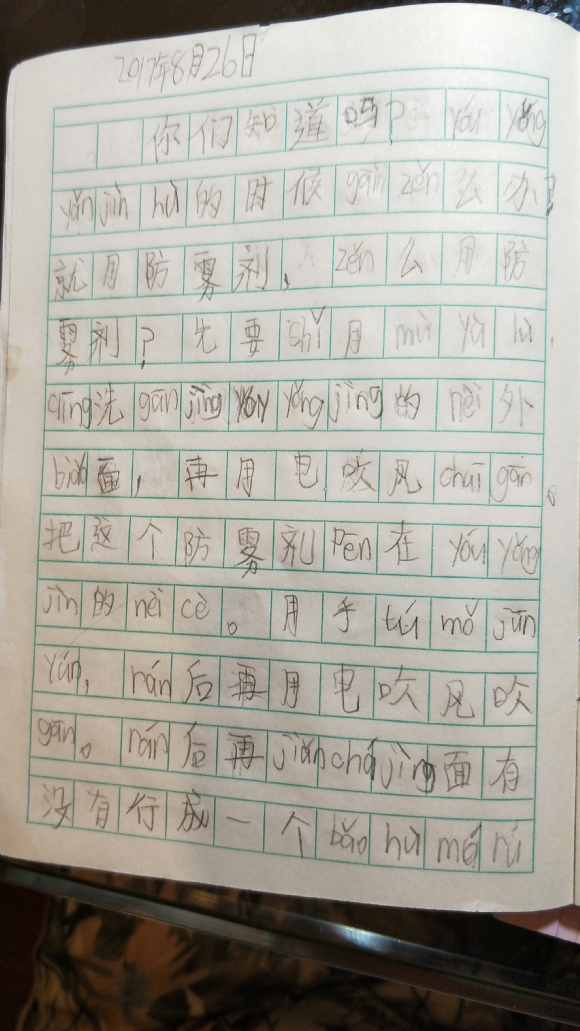 2017年8月26日
你们知道吗？yóu yǒng
yǎn jìn hù的时候gāi zěn么办？
就用防雾剂，zěn么用防
雾剂？先要shǐ用mù yù lù，
qīng洗gān jìng yóu yǒng jìng的nèi外
biǎo面，再用电吹风chuī gān。
把这个防雾剂Pēn在yóu yǒng
jìn的nèi cè。用手tú mǒ jūn
yún，rán后再用电吹风吹
gān。rán后再jiǎn chá jìng面有
没有行成一个bǎo hù mó rú